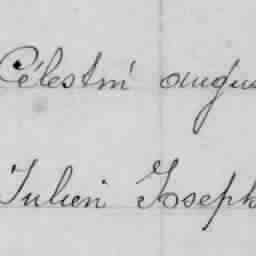 Célestin augu
Julien Joseph